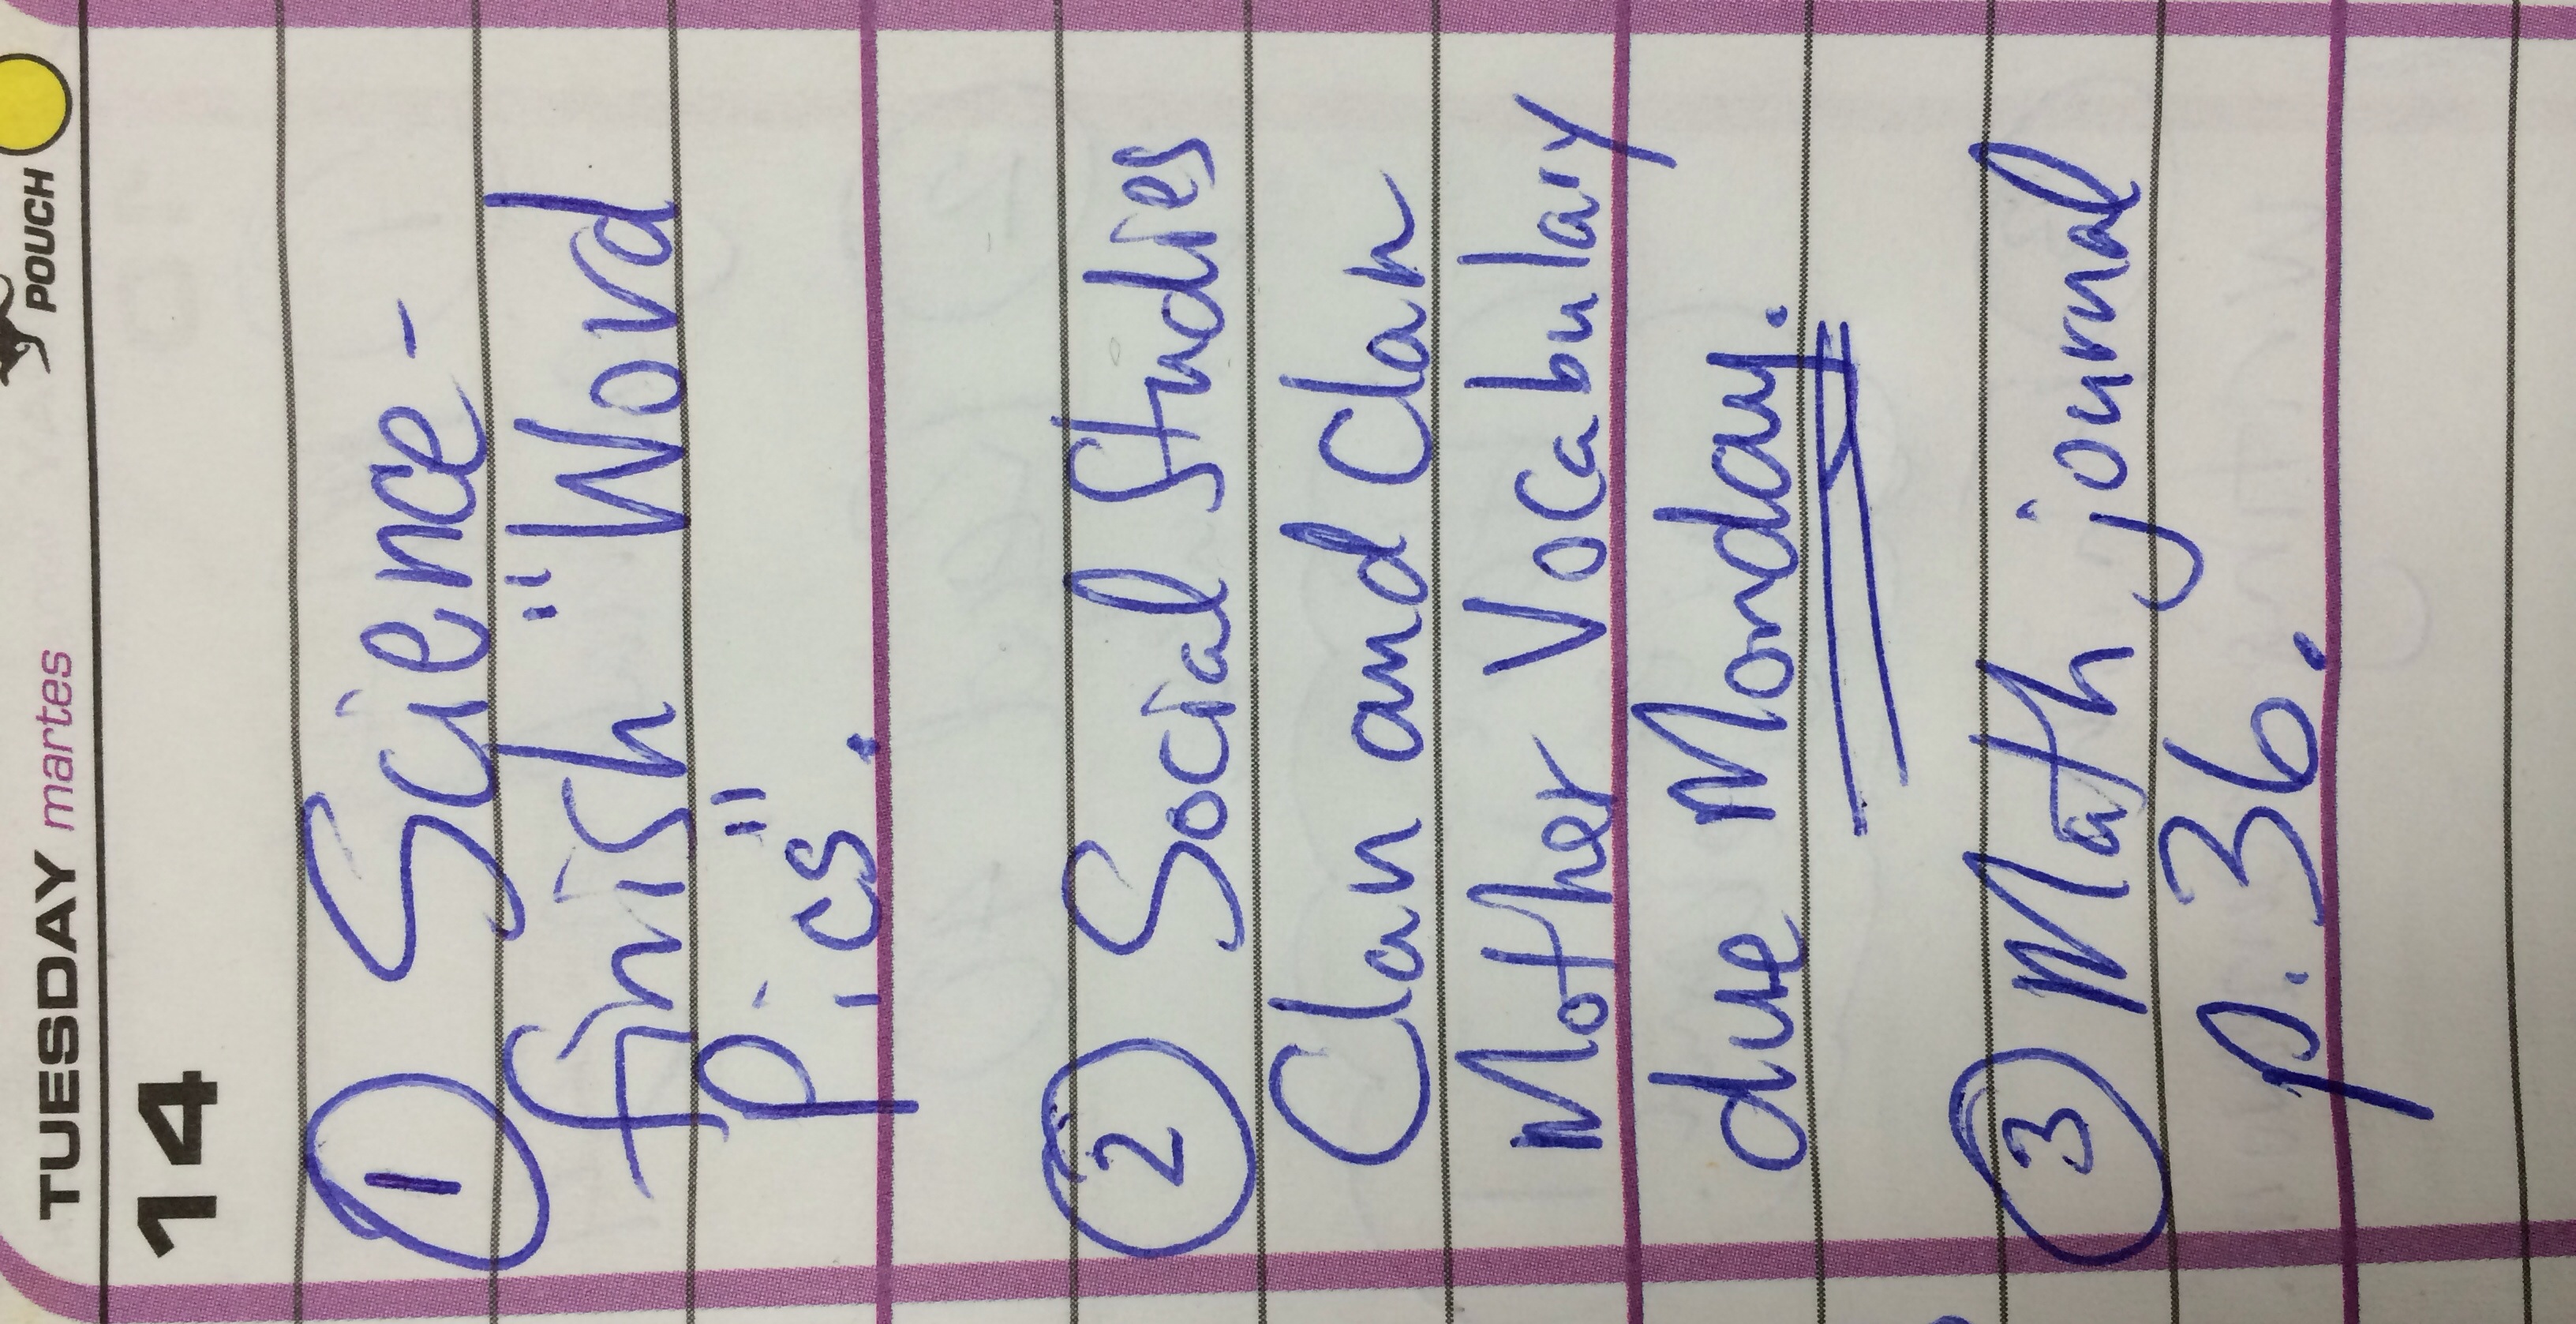 TUESDAY martes POUCH
14
① Science -
finish "Word
pics."
② Social Studies
Clan and Clan
Mother Vocabulary
due Monday.
③ Math journal
p. 36.